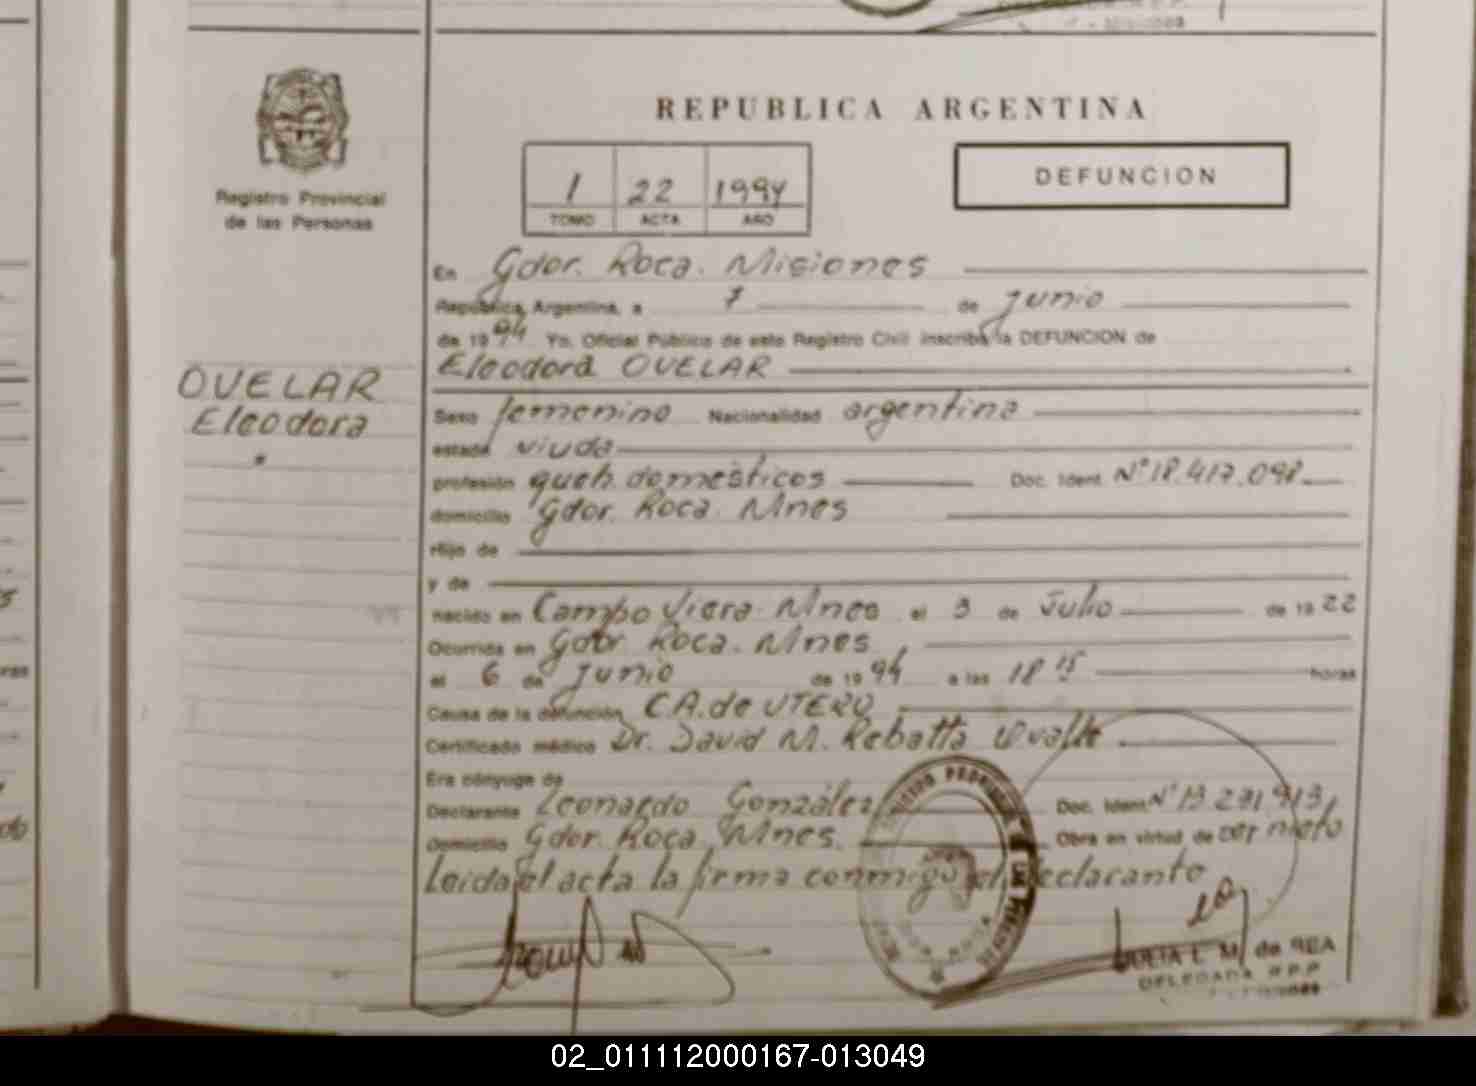 REPUBLICA ARGENTINA
Registro Provincial
de las Personas
1 22 1994
TOMO ACTA AÑO
DEFUNCION
En Gdor. Roca. Misiones
República Argentina, a 7 de junio
de 1994 Yo, Oficial Público de este Registro Civil inscribo la DEFUNCION de
Eleodora OVELAR
OVELAR
Eleodora
Sexo femenino Nacionalidad argentina
estado viuda
profesión queh. domésticos Doc. Ident. N° 18.417.098
domicilio Gdor. Roca. Mnes
Hijo de
y de
nacido en Campo Viera. Mnes el 3 de Julio de 1922
Ocurrida en Gdor Roca. Mnes
el 6 de junio de 1994 a las 18 15 horas
Causa de la defunción CA. de UTERO
Certificado médico Dr. David M. Rebatta Ovalle
Era cónyuge de
Declarante Leonardo González Doc. Ident N° 13.271.913
Domicilio Gdor. Roca Mnes. Obra en virtud de ser nieto
Leida el acta la firma conmigo el declarante
JULIA L. M. de REA
DELEGADA R.P.P.
02_011112000167-013049